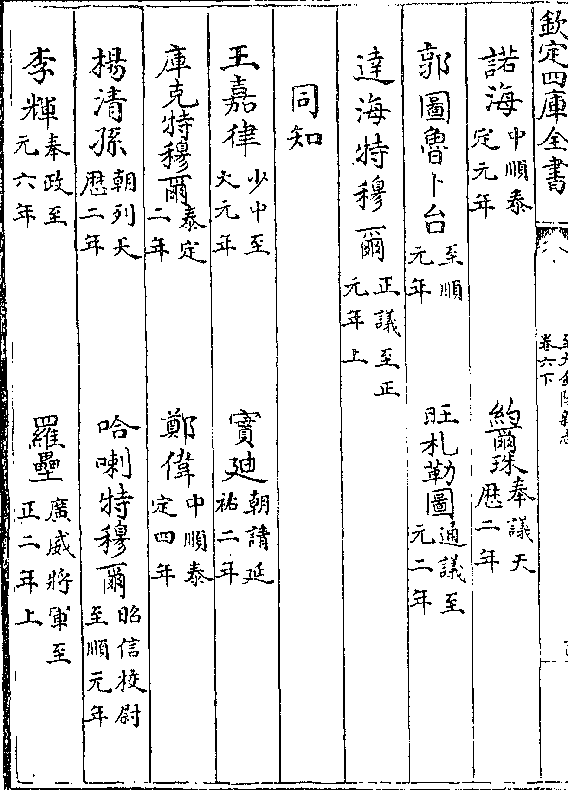 欽定四庫全書
卷六下
諾海中順泰定元年 約爾珠奉議天厯二年
郭圖魯卜台至順元年 旺札勒圖通議至元二年
達海特穆爾正議至正元年上
同知
王嘉律少中至大元年 竇廸朝請延祐二年
庫克特穆爾泰定二年 鄭偉中順泰定四年
楊清孫朝列天厯二年 哈喇特穆爾昭信校尉至順元年
李輝奉政至元六年 羅壘廣威將軍至正二年上